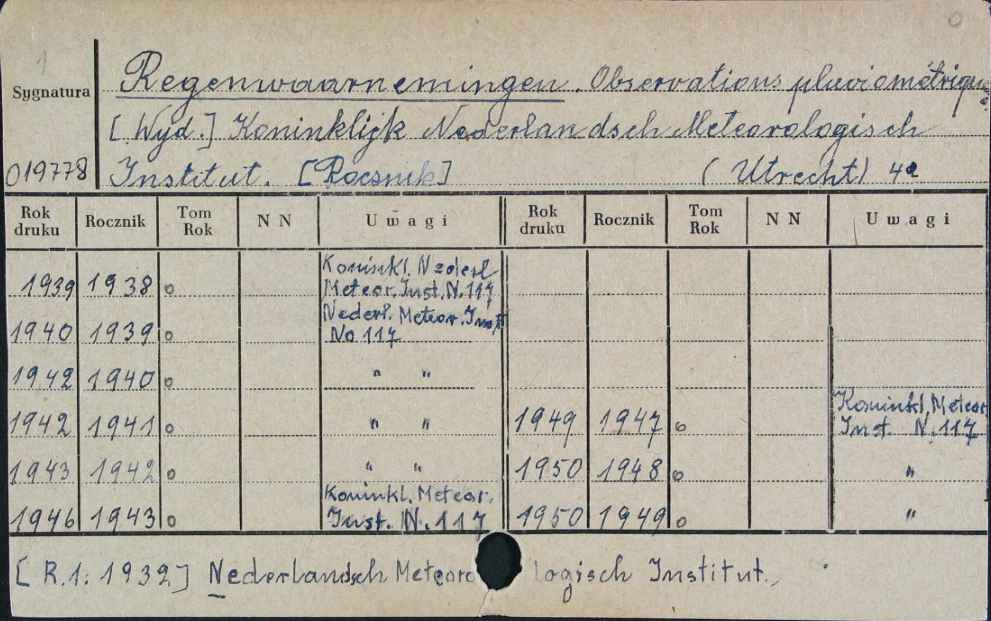 1
0
Sygnatura
019778
Regenwaarnemingen. Observations pluviométriques
[Wyd.] Koninklijk Nederlandsch Meteorologisch
Institut. [Rocznik] (Utrecht) 4°
Rok druku Rocznik Tom Rok NN Uwagi Rok druku Rocznik Tom Rok NN Uwagi
1939 1938 o Koninkl. Nederl Meteor. Inst. N. 117
1940 1939 o Nederl. Meteor. Inst No 117
1942 1940 o " "
1942 1941 o " " 1949 1947 o Koninkl. Meteor Inst. N. 117
1943 1942 o " " 1950 1948 o "
1946 1943 o Koninkl. Meteor. Inst. N. 117 1950 1949 o "
[R.1: 1932] Nederlandsch Meteorologisch Institut.